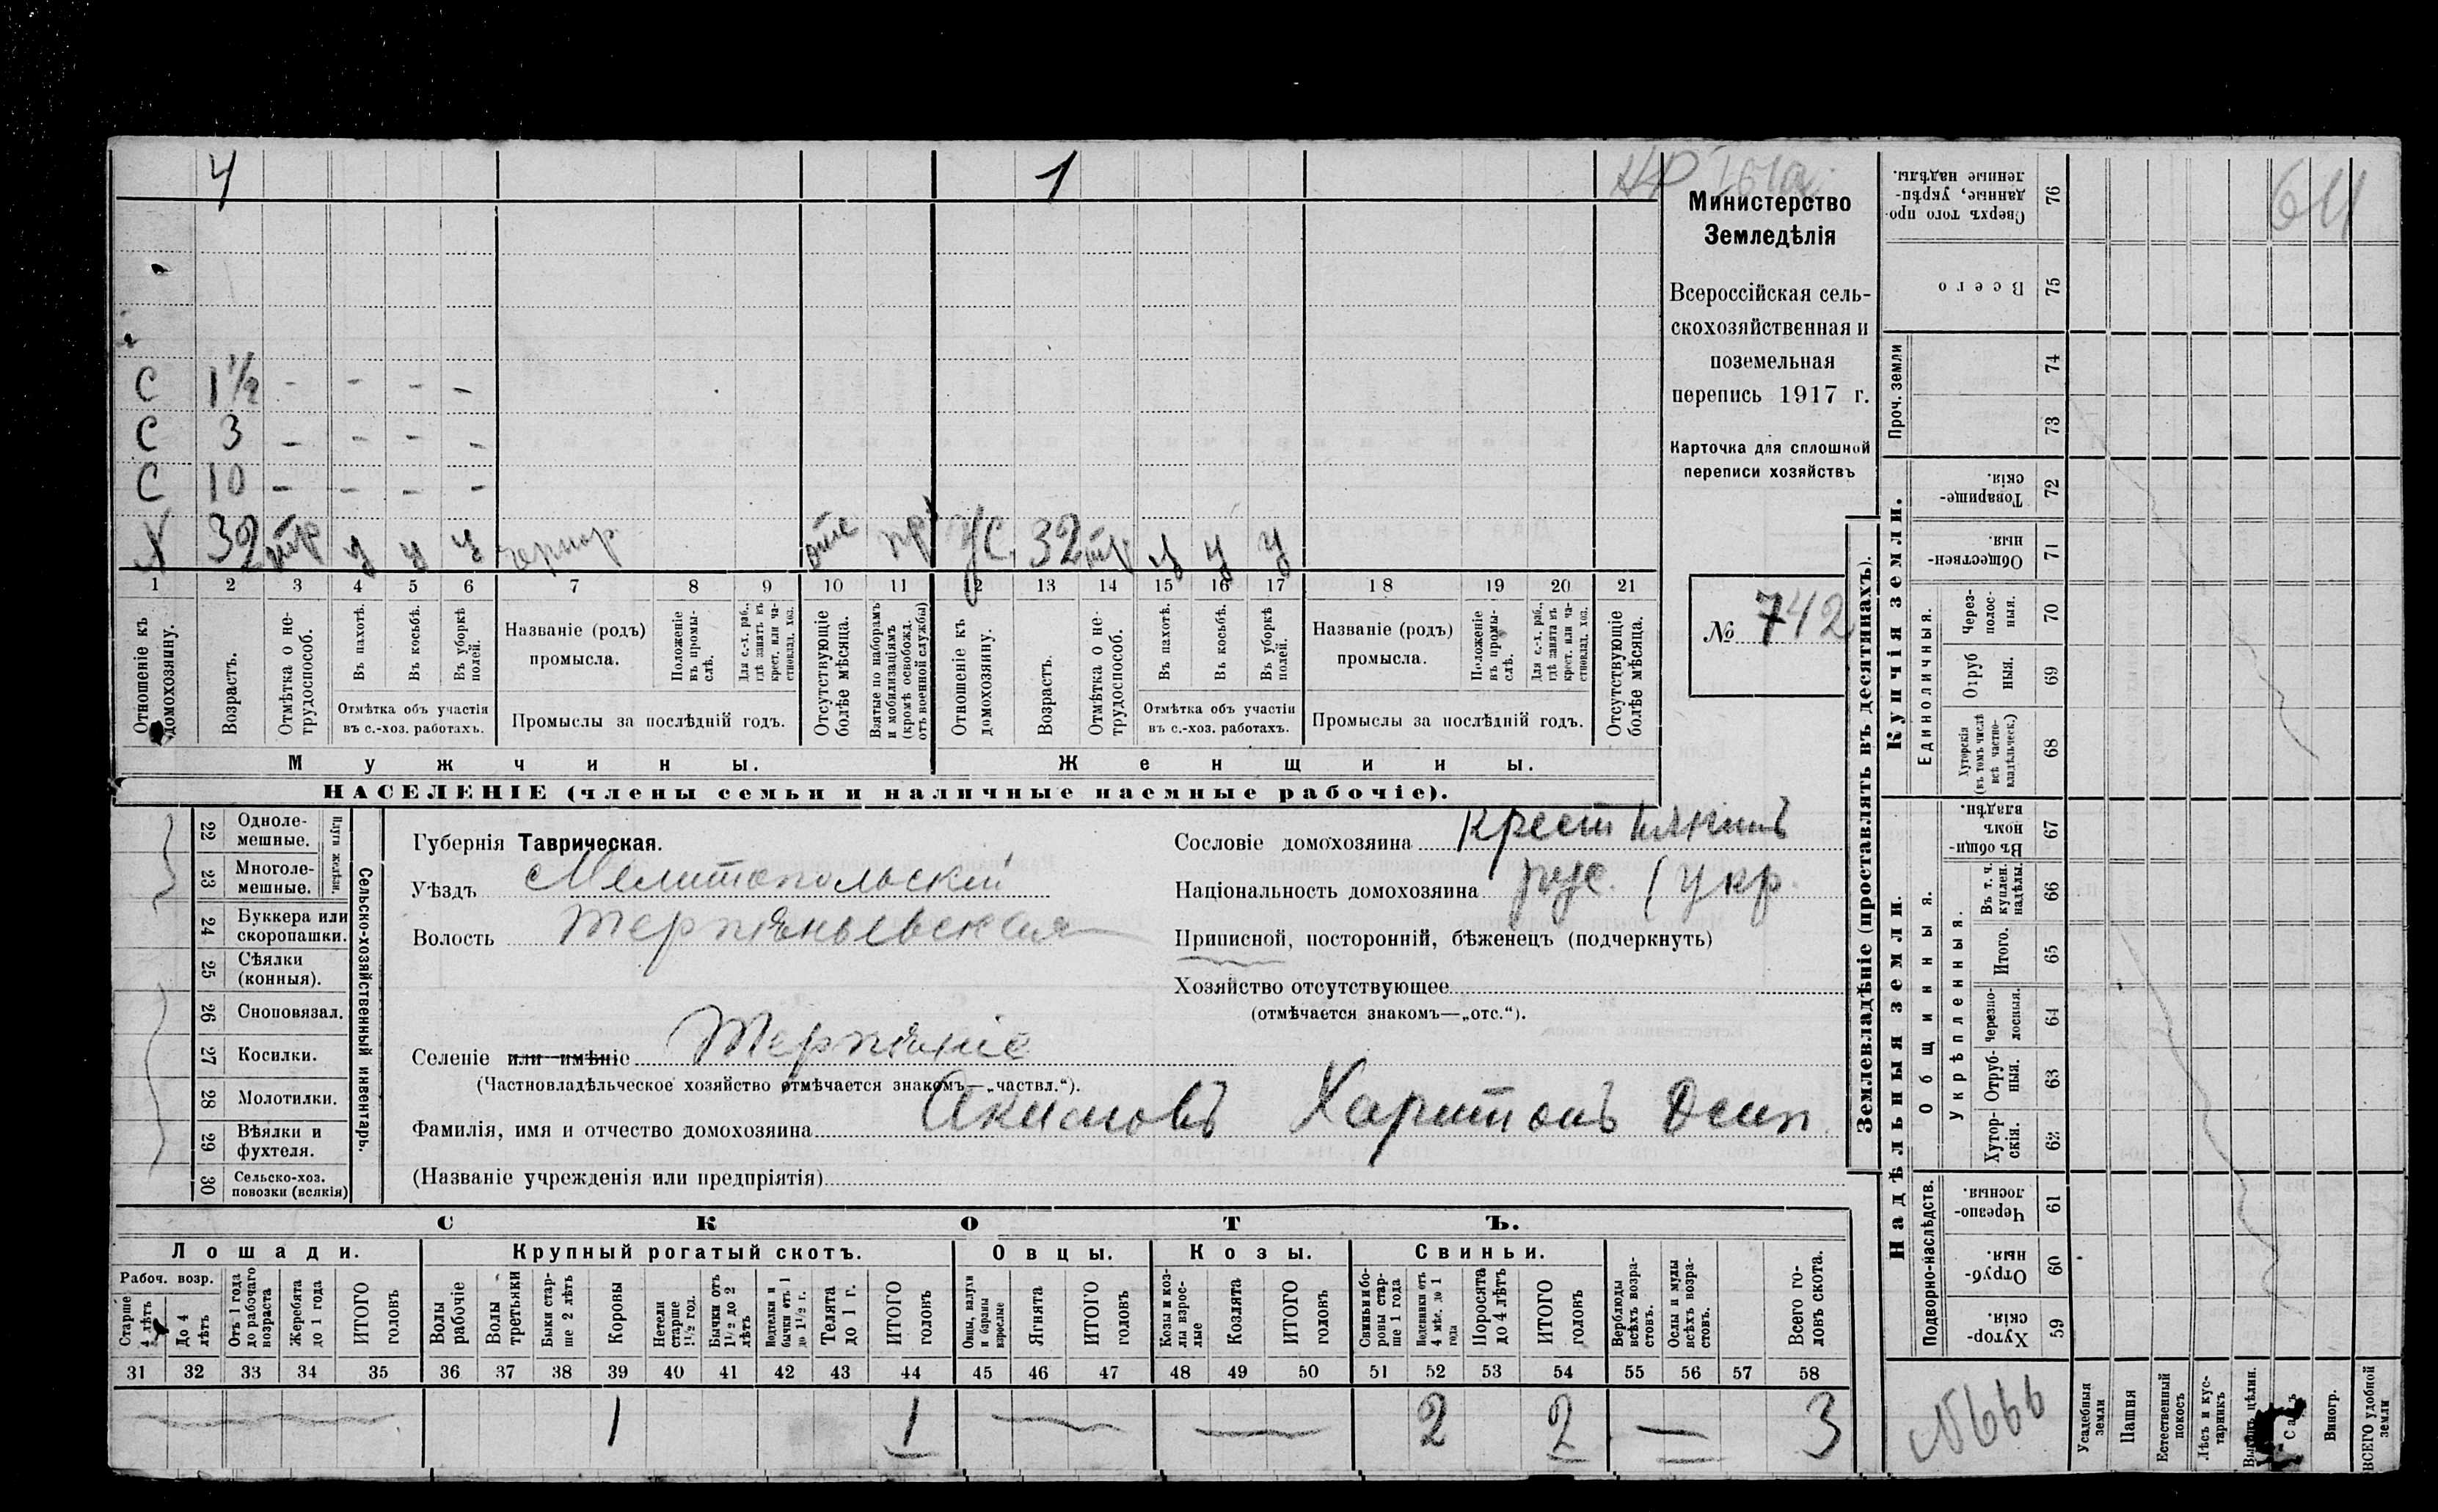 4 1
С 1½ - - - -
С 3 - - - -
С 10 - - - -
Х 32 тр у у у отс пр ж 32 тр. у у у
1 2 3 4 5 6 7 8 9 10 11 12 13 14 15 16 17 18 19 20 21
Отношеніе къ домохозяину.
Возрастъ.
Отмѣтка о нетрудоспособ.
Въ пахотѣ.
Въ косьбѣ.
Въ уборкѣ полей.
Отмѣтка объ участія
въ с.-хоз. работахъ.
Названіе (родъ)
промысла.
Положеніе въ промыслѣ.
Для с.-х. раб., гдѣ занятъ въ крест. или частновлад. хоз.
Промыслы за послѣдній годъ.
Отсутствующіе болѣе мѣсяца.
Взятые по наборамъ и мобилизаціямъ (кромѣ освобожд. отъ военной службы)
Отношеніе къ домохозяину.
Возрастъ.
Отмѣтка о нетрудоспособ.
Въ пахотѣ.
Въ косьбѣ.
Въ уборкѣ полей.
Отмѣтка объ участіи
въ с.-хоз. работахъ.
Названіе (родъ)
промысла.
Положеніе въ промыслѣ.
Для с.-х. раб., гдѣ занята въ крест. или частновлад. хоз.
Промыслы за послѣдній годъ.
Отсутствующіе болѣе мѣсяца.
Мужчины. Женщины.
НАСЕЛЕНІЕ (члены семьи и наличные наемные рабочіе).
Министерство
Земледѣлія
Всероссійская сель-
скохозяйственная и
поземельная
перепись 1917 г.
Карточка для сплошной
переписи хозяйствъ
№ 742
22 Одноле-
мешные.
23 Многоле-
мешные.
Плуги желѣзн.
24 Буккера или
скоропашки.
25 Сѣялки
(конныя).
26 Сноповязал.
27 Косилки.
28 Молотилки.
29 Вѣялки и
фухтеля.
30 Сельско-хоз.
повозки (всякія)
Сельско-хозяйственный инвентарь.
Губернія Таврическая.
Уѣздъ Мелитопольскій
Волость Терпѣньевская
Селеніе или имѣніе Терпѣніе
(Частновладѣльческое хозяйство отмѣчается знакомъ—„частвл.“).
Фамилія, имя и отчество домохозяина Акимовъ Харитонъ Осип
(Названіе учрежденія или предпріятія)
Сословіе домохозяина крестьянинъ
Національность домохозяина рус. (укр.
Приписной, посторонній, бѣженецъ (подчеркнуть)
Хозяйство отсутствующее
(отмѣчается знакомъ—„отс.“).
СКОТЪ.
Лошади. Крупный рогатый скотъ. Овцы. Козы. Свиньи.
Рабоч. возр.
Старше 4 лѣтъ
До 4 лѣтъ
Отъ 1 года до рабочаго возраста
Жеребята до 1 года
ИТОГО головъ
Волы рабочіе
Волы третьяки
Быки старше 2 лѣтъ
Коровы
Нетели старше 1½ год.
Бычки отъ 1½ до 2 лѣтъ
Нетелки и бычки отъ 1 до 1½ г.
Телята до 1 г.
ИТОГО головъ
Овцы, валухи и бараны взрослые
Ягнята
ИТОГО головъ
Козы и козлы взрослые
Козлята
ИТОГО головъ
Свиньи и боровы старше 1 года
Подсвинки отъ 4 мѣс. до 1 года
Поросята до 4 лѣтъ
ИТОГО головъ
Верблюды всѣхъ возрастовъ.
Ослы и мулы всѣхъ возрастовъ.
Всего головъ скота.
31 32 33 34 35 36 37 38 39 40 41 42 43 44 45 46 47 48 49 50 51 52 53 54 55 56 57 58
1 1 2 2 — 3
Землевладѣніе (проставлять въ десятинахъ).
Сверхъ того проданные, укрѣпленные надѣлы. 76
Всего 75
Проч. земли 74
73
Купчія земли.
Товарищескія. 72
Общественныя. 71
Единоличныя.
Черезполосныя. 70
Отрубныя. 69
Хуторскія (въ томъ числѣ всѣ частновладѣльческ.) 68
Надѣльныя земли.
Общинныя.
Въ общинномъ владѣн. 67
Укрѣпленныя.
Въ т. ч. куплен. надѣлы. 66
Итого. 65
Черезполосныя. 64
Отрубныя. 63
Хуторскія. 62
Подворно-наслѣдств.
Черезполосныя. 61
Отрубныя. 60
Хуторскія 59
Усадебныя земли
Пашня
Естественный покосъ
Лѣсъ и кустарникъ
Садъ
Виногр.
ВСЕГО удобной земли
64
№666